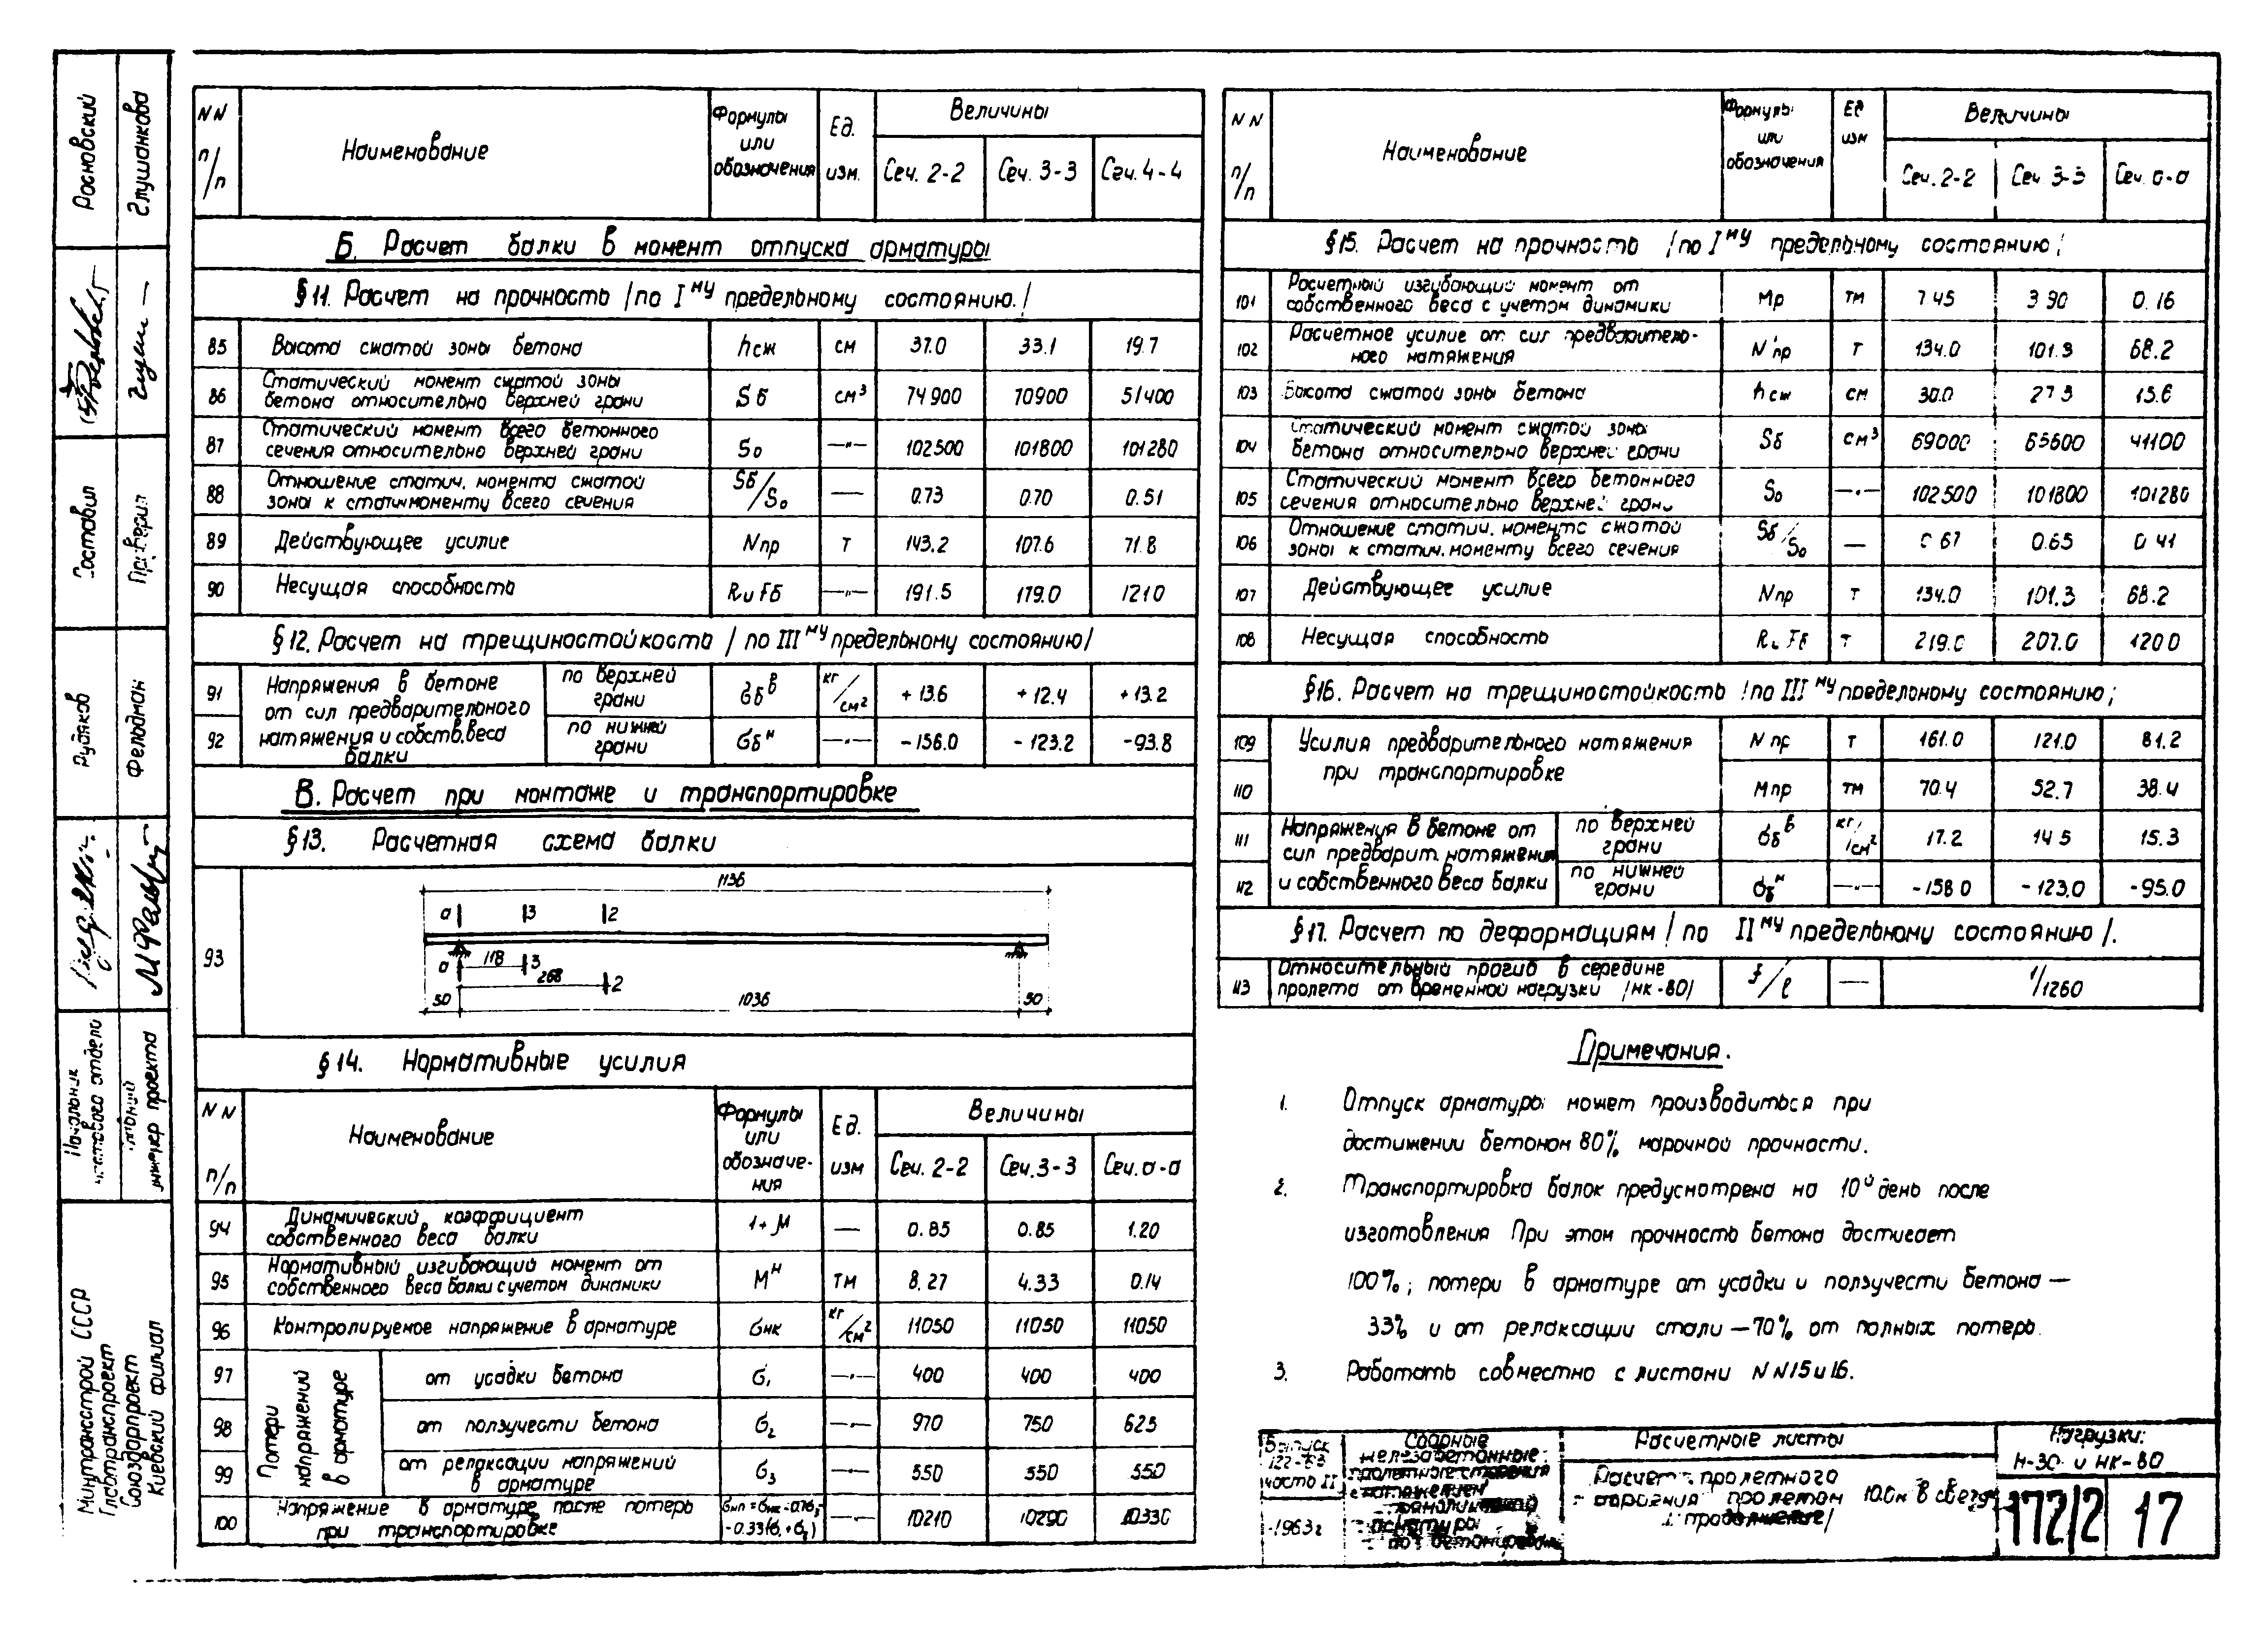 NN п/п Наименование Формулы или обозначения Ед. изм. Величины
Сеч. 2-2 Сеч. 3-3 Сеч. 4-4
Б. Расчет балки в момент отпуска арматуры
§11. Расчет на прочность /по I му предельному состоянию./
85 Высота сжатой зоны бетона hсж см 37.0 33.1 19.7
86 Статический момент сжатой зоны
бетона относительно верхней грани Sб см³ 74900 70900 51400
87 Статический момент всего бетонного
сечения относительно верхней грани So —"— 102500 101800 101280
88 Отношение статич. момента сжатой
зоны к стат.моменту всего сечения Sб/So — 0.73 0.70 0.51
89 Действующее усилие Nпр т 143.2 107.6 71.8
90 Несущая способность RиFб —"— 191.5 179.0 121.0
§12. Расчет на трещиностойкость / по III му предельному состоянию/
91 Напряжения в бетоне от сил предварительного натяжения и собств.веса балки по верхней грани σб в кг/см² +13.6 +12.4 +13.2
92 по нижней грани σб н —"— -156.0 -123.2 -93.8
В. Расчет при монтаже и транспортировке
§13. Расчетная схема балки
93
1136
а 3 2
а 118 3
268 2
50 1036 50
§14. Нормативные усилия
NN п/п Наименование Формулы или обозначения Ед. изм Величины
Сеч. 2-2 Сеч. 3-3 Сеч. а-а
94 Динамический коэффициент
собственного веса балки 1+М — 0.85 0.85 1.20
95 Нормативный изгибающий момент от
собственного веса балки с учетом динамики Mн тм 8.27 4.33 0.14
96 Контролируемое напряжение в арматуре σнк кг/см² 11050 11050 11050
Потери напряжений в арматуре
97 от усадки бетона σ₁ —"— 400 400 400
98 от ползучести бетона σ₂ —"— 970 750 625
99 от релаксации напряжений
в арматуре σ₃ —"— 550 550 550
100 Напряжение в арматуре после потерь
при транспортировке —"— 10210 10290 10330
NN п/п Наименование Формулы или обозначения Ед изм Величины
Сеч. 2-2 Сеч 3-3 Сеч. а-а
§15. Расчет на прочность /по I му предельному состоянию/
101 Расчетный изгибающий момент от
собственного веса с учетом динамики Mр тм 7.45 3.90 0.16
102 Расчетное усилие от сил предваритель-
ного натяжения Nпр т 134.0 101.3 68.2
103 Высота сжатой зоны бетона hсж см 30.0 27.3 15.6
104 Статический момент сжатой зоны
бетона относительно верхней грани Sб см³ 69000 65600 41100
105 Статический момент всего бетонного
сечения относительно верхней грани So —"— 102500 101800 101280
106 Отношение статич. момента сжатой
зоны к статич. моменту всего сечения Sб/So — 0.67 0.65 0.41
107 Действующее усилие Nпр т 134.0 101.3 68.2
108 Несущая способность Rи Fб т 219.0 207.0 120.0
§16. Расчет на трещиностойкость /по III му предельному состоянию/
109 Усилия предварительного натяжения Nпр т 161.0 121.0 81.2
110 при транспортировке Mпр тм 70.4 52.7 38.4
111 Напряжения в бетоне от сил предварит. натяжения и собственного веса балки по верхней грани σб в кг/см² 17.2 14.5 15.3
112 по нижней грани σб н —"— -158.0 -123.0 -95.0
§17. Расчет по деформациям / по II му предельному состоянию /.
113 Относительный прогиб в середине
пролета от временной нагрузки /НК-80/ f/l — 1/1260
Примечания.
1. Отпуск арматуры может производиться при
достижении бетоном 80% марочной прочности.
2. Транспортировка балок предусмотрена на 10й день после
изготовления При этом прочность бетона достигает
100%; потери в арматуре от усадки и ползучести бетона —
33% и от релаксации стали —70% от полных потерь.
3. Работать совместно с листами NN15и16.
Выпуск 122-63
часть II
1963г
Сборные
железобетонные
пролетные строения
с натяжением
арматуры
до бетонирования
Расчетные листы
Расчет пролетного
строения пролетом 10.0м в свету
/продолжение/
Нагрузки:
Н-30 и НК-80
172/2 17
Росновский Глушанкова
Составил Проверил
Рудяков Фельдман
Начальник
Главный
инженер проекта
Минтрансстрой СССР
Главтранспроект
Союздорпроект
Киевский филиал